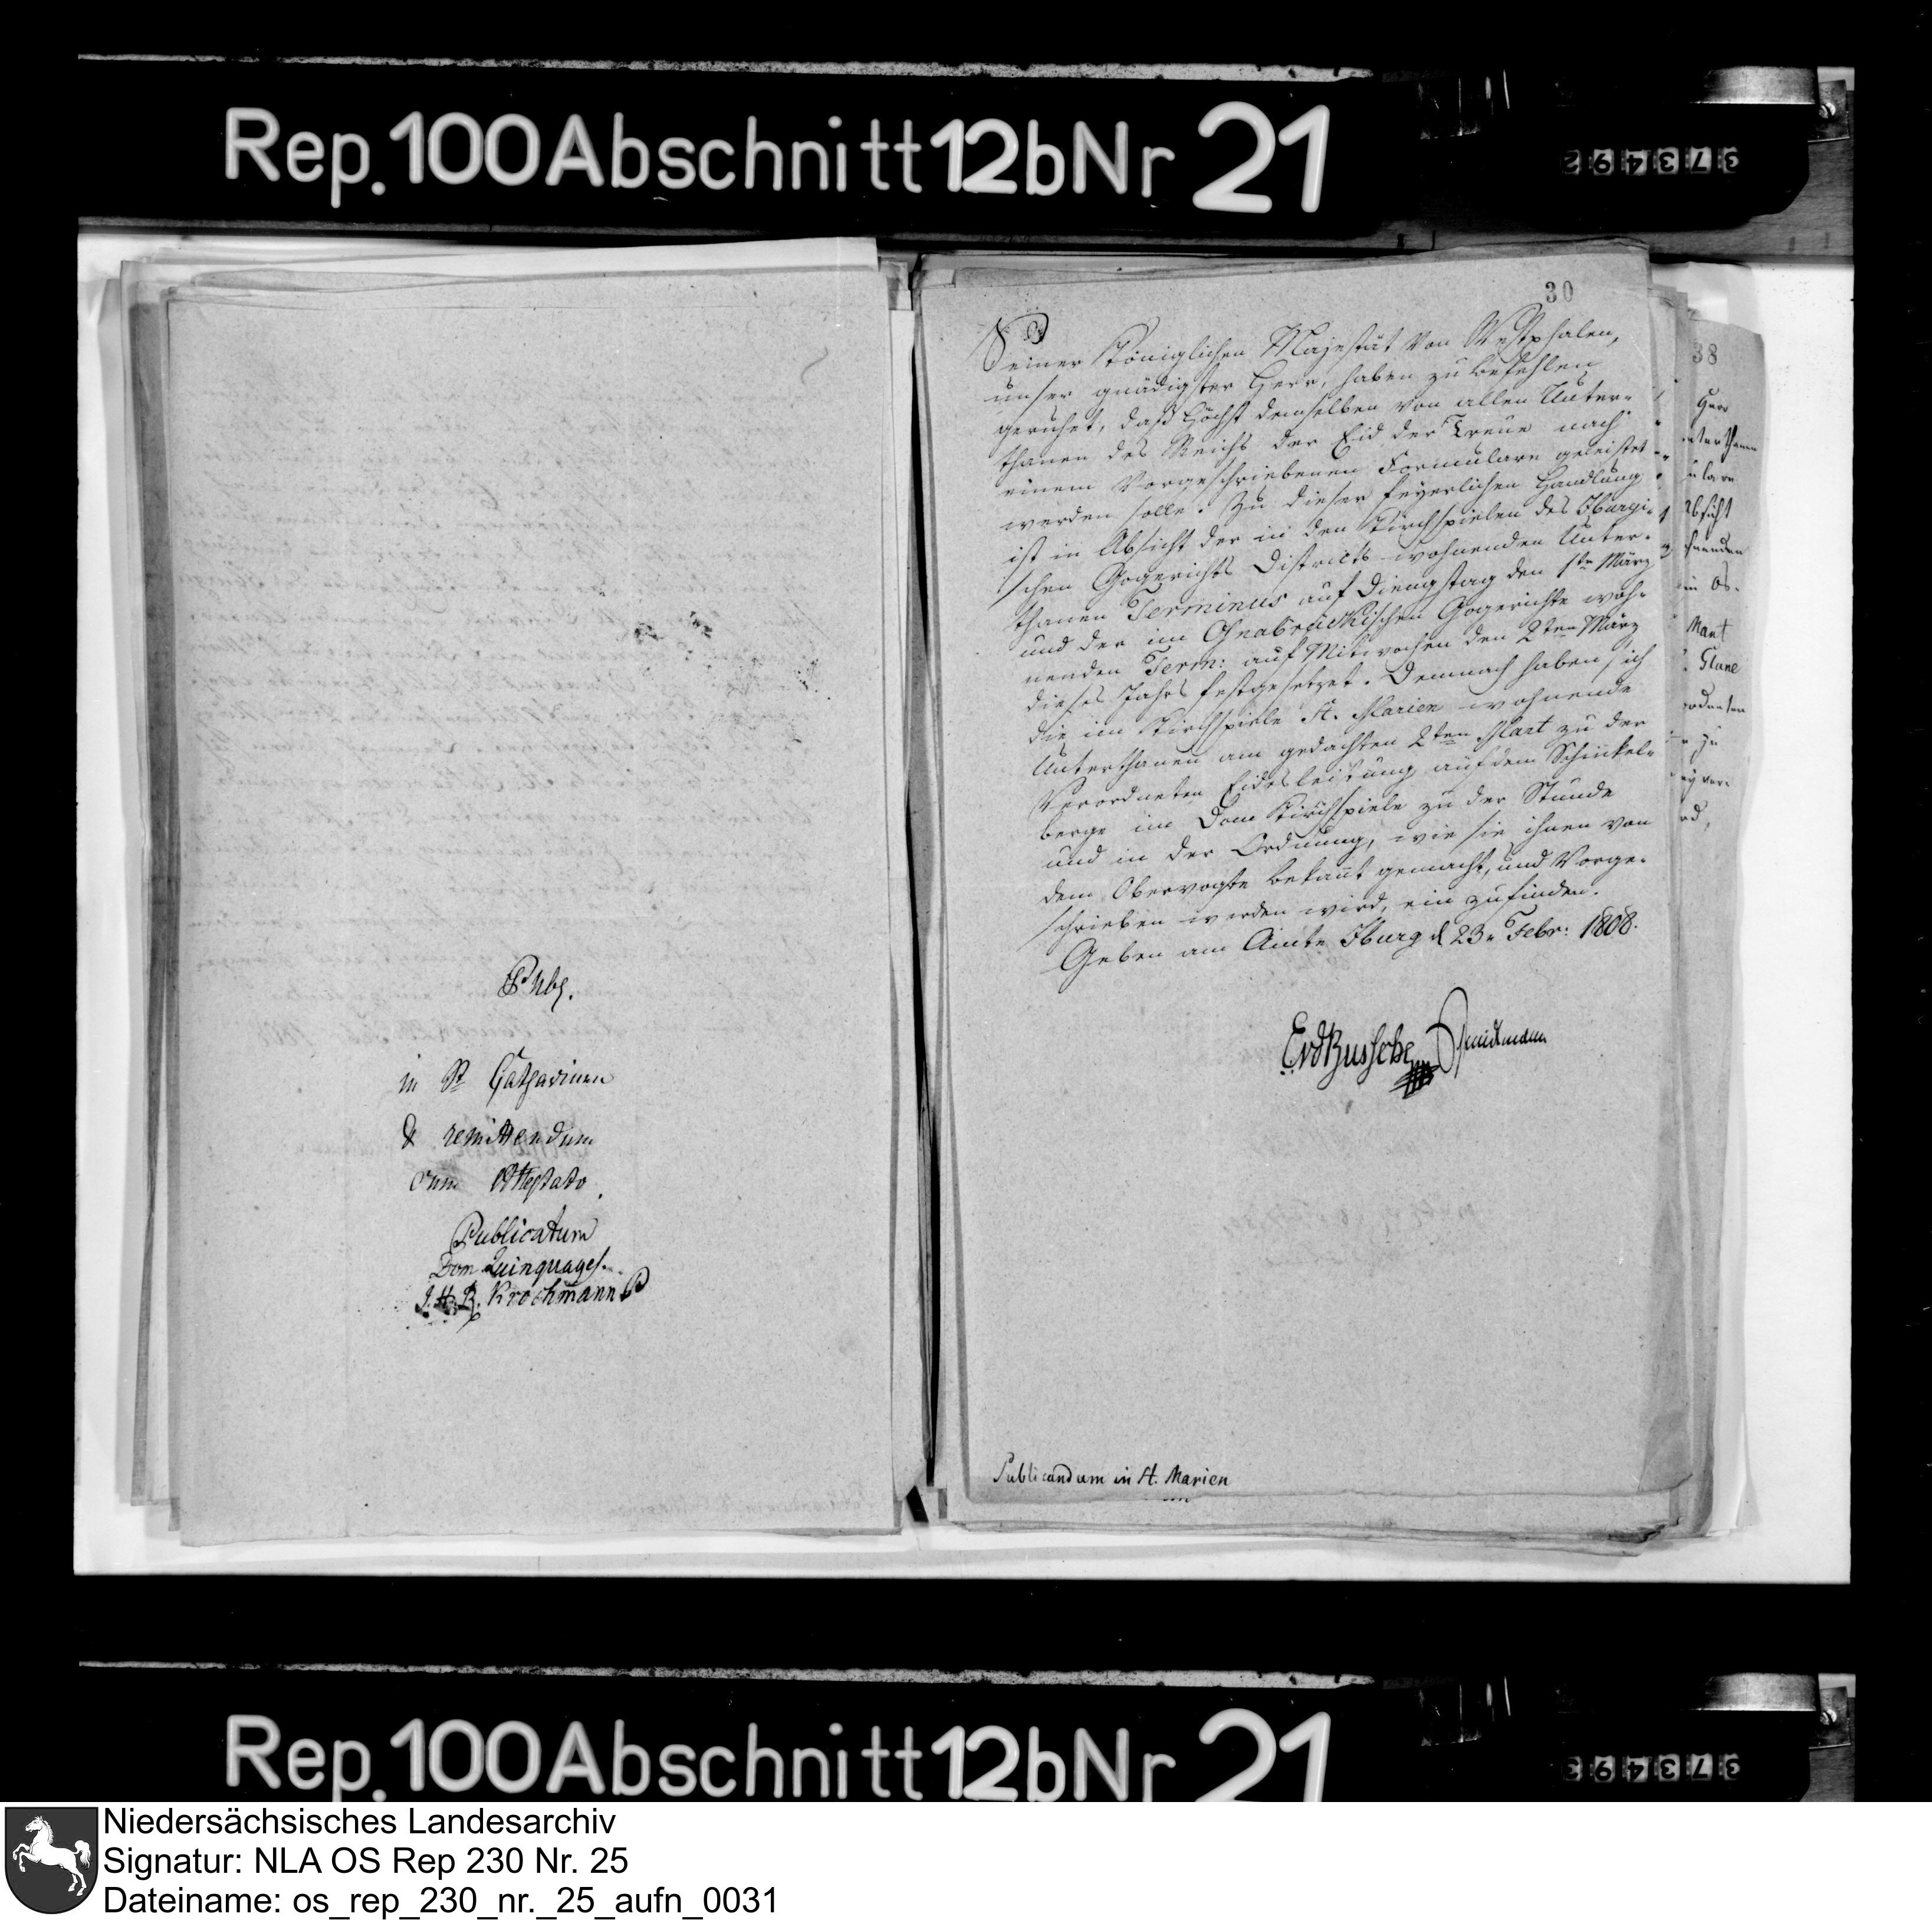 Rep. 100 Abschnitt 12b Nr 21
373492
Publ.
in St Catharinen
& remittendum
cum Attestato.
Publicatum
Dom Quinquages.
J. H. B. Krochmann P
30
Seiner Königlichen Majestät von Westphalen,
unser gnädigster Herr, haben zu befehlen
geruhet, daß Höchst demselben von allen Unter-
thanen des Reichs der Eid der Treue nach
einem vorgeschriebenen Formulare geleistet
werden solle. Zu dieser feyerlichen Handlung
ist in Absicht der in den Kirchspielen des Iburgi-
schen Gogerichts Districts wohnenden Unter-
thanen Terminus auf Diengstag den 1ten März
und der im Osnabrückischen Gogerichte woh-
nenden Term: auf Mitwochen den 2ten März
dieses Jahrs festgesetzet. Demnach haben sich
die im Kirchspiele St. Marien wohnende
Unterthanen am gedachten 2ten Mart zu der
verordneten Eidesleistung auf dem Schinkel-
berge im Dom Kirchspiele zu der Stunde
und in der Ordnung, wie sie ihnen von
dem Obervogte bekant gemacht, und vorge-
schrieben werden wird, ein zufinden.
Geben am Amte Iburg d 23n Febr: 1808.
EvdBussche
Publicandum in St. Marien
38
Herr
nterthanen
ulare
Absicht
hnenden
im Os-
Mart
Glane
zu
rd,
Rep. 100 Abschnitt 12b Nr 21
373493
Niedersächsisches Landesarchiv
Signatur: NLA OS Rep 230 Nr. 25
Dateiname: os_rep_230_nr._25_aufn_0031